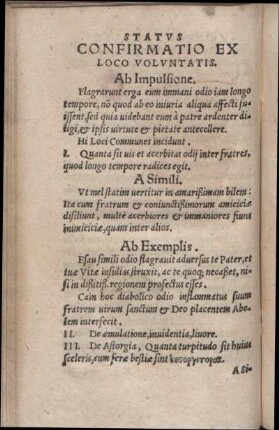 STATVS
CONFIRMATIO EX
LOCO VOLVNTATIS.
Ab Impulsione.
Flagrarunt erga eum immani odio iam longo
tempore, nõ quod ab eo iniuria aliqua affecti fu-
issent, sed quia uidebant eum à patre ardenter di-
ligi, & ipsis uirtute & pietate antecellere.
Hi Loci Communes incidunt.
I. Quanta sit uis et acerbitas odij inter fratres,
quod longo tempore radices egit.
A Simili.
Vt mel statim uertitur in amarißimam bilem:
Ita cum fratrum & coniunctißimorum amicitiæ
dissiliunt, multò acerbiores & immaniores fiunt
inimicitiæ, quam inter alios.
Ab Exemplis.
Esau simili odio flagrauit aduersus te Pater, et
tuæ Vitæ insidias struxit, ac te quoq; necasset, ni-
si in dißitiß. regionem profectus esses.
Cain hoc diabolico odio inflammatus suum
fratrem uirum sanctum & Deo placentem Abe-
lem intersecit.
II. De æmulatione, inuidentia, liuore.
III. De Astorgia, Quanta turpitudo sit huius
sceleris, cum feræ bestiæ sint
A Si-